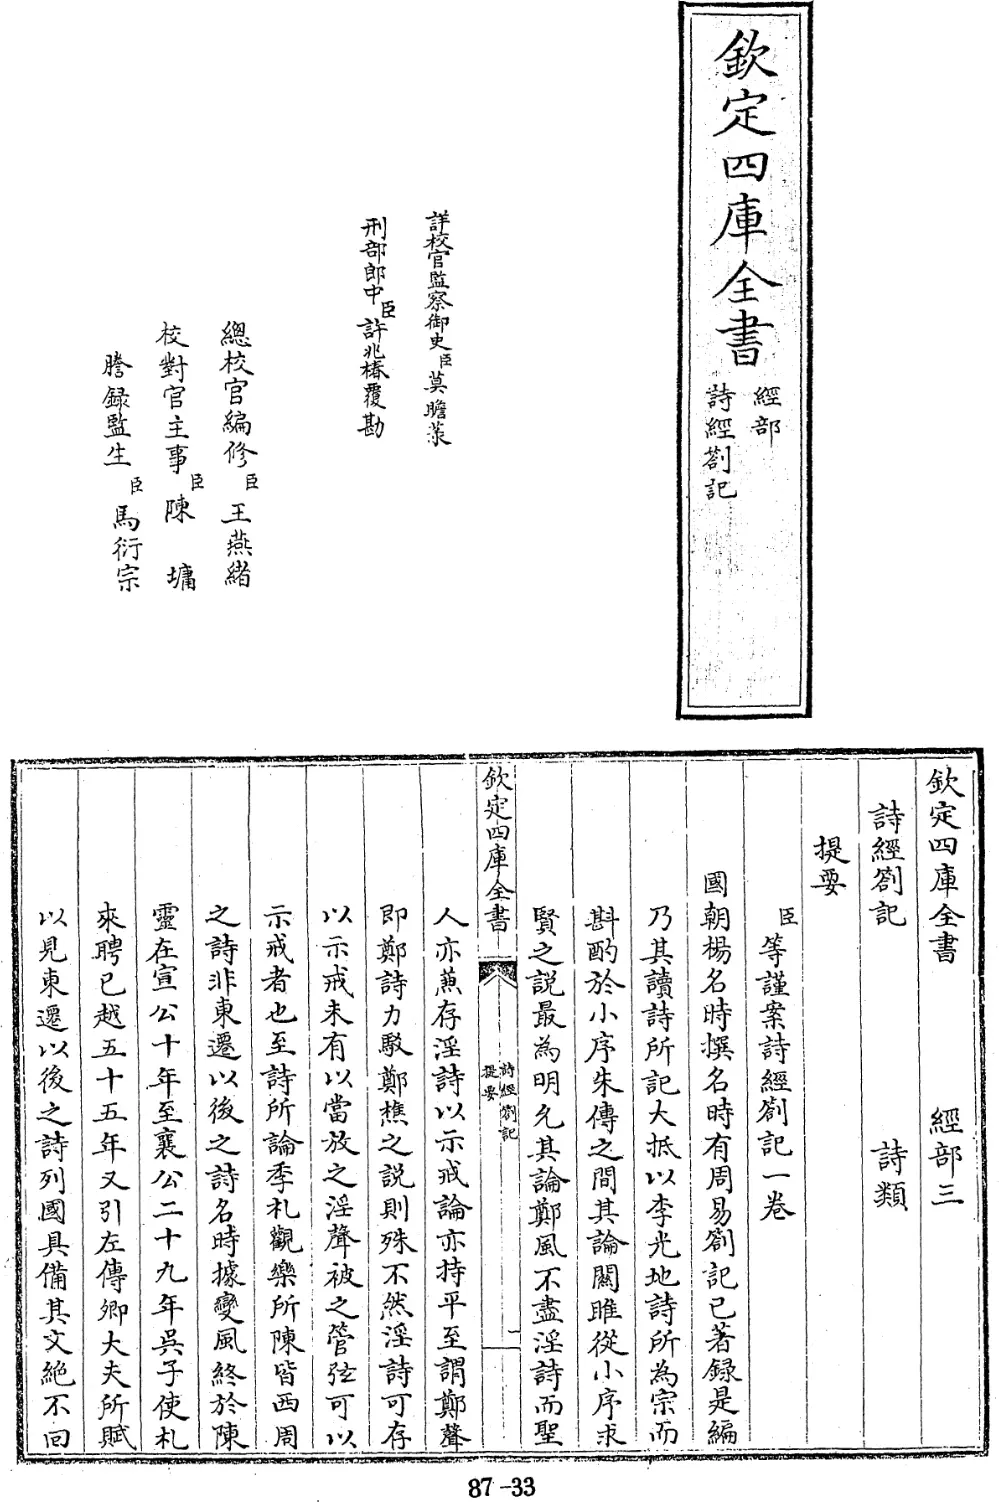 欽定四庫全書
經部
詩經劄記
詳校官監察御史臣莫瞻菉
刑部郎中臣許兆椿覆勘
總校官編修臣王燕緒
校對官主事臣陳墉
謄録監生臣馬衍宗
欽定四庫全書 經部三
詩經劄記 詩類
提要
臣等謹案詩經劄記一卷
國朝楊名時撰名時有周易劄記已著録是編
乃其讀詩所記大抵以李光地詩所為宗而
斟酌於小序朱傳之間其論關雎從小序求
賢之説最為明允其論鄭風不盡淫詩而聖
欽定四庫全書
詩經劄記
提要
一
人亦蕪存淫詩以示戒論亦持平至謂鄭聲
即鄭詩力駁鄭樵之説則殊不然淫詩可存
以示戒未有以當放之淫聲被之管弦可以
示戒者也至詩所論季札觀樂所陳皆西周
之詩非東遷以後之詩名時據變風終於陳
靈在宣公十年至襄公二十九年吳子使札
來聘已越五十五年又引左傳卿大夫所賦
以見東遷以後之詩列國具備其文絶不回
87-33